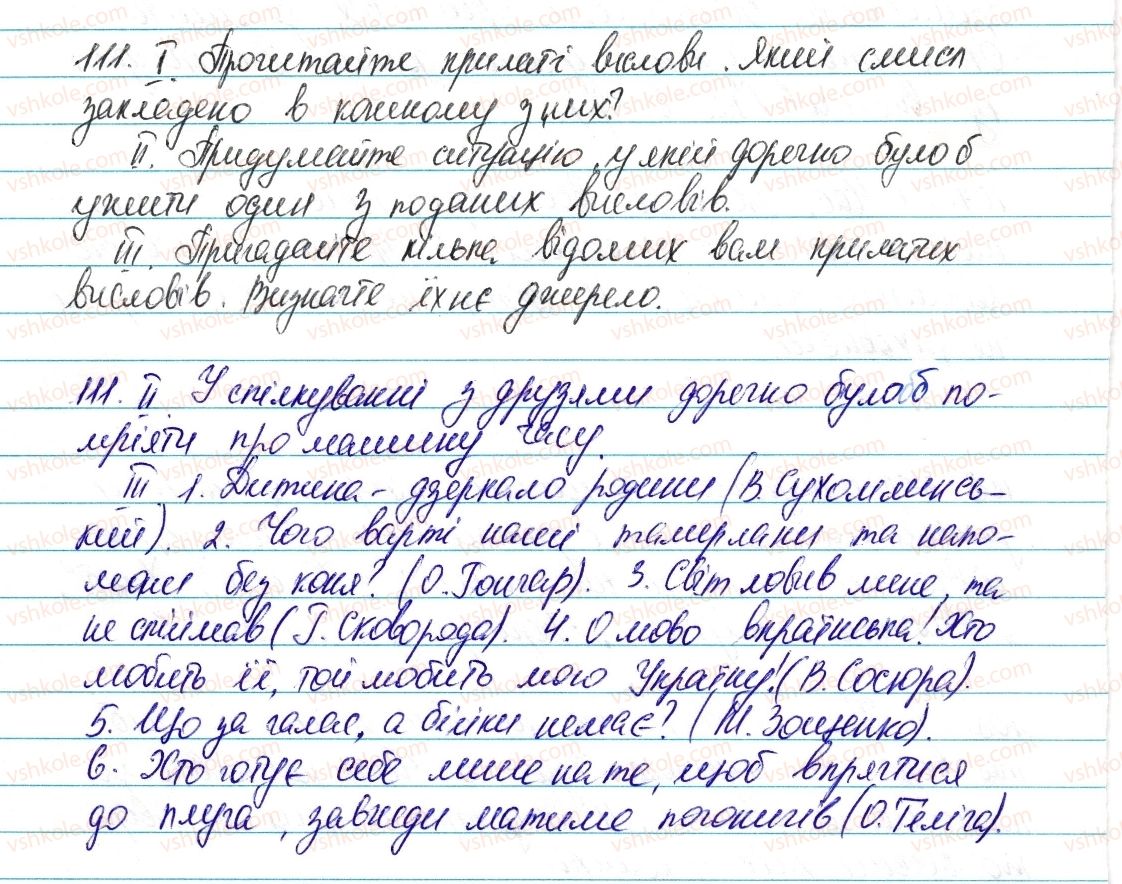 111. I. Прочитайте крилаті вислови. Який смисл
закладено в кожному з них?
II. Придумайте ситуацію, у якій доречно було б
ужити один з поданих висловів.
III. Пригадайте кілька відомих вам крилатих
висловів. Визначте їхнє джерело.
111. II. У спілкуванні з друзями доречно було б по-
мріяти про машину часу.
III. 1. Дитина - дзеркало родини (В. Сухомлинсь-
кий). 2. Чого варті наші тамерлани та напо-
леони без коня? (О. Гончар). 3. Світ ловив мене, та
не спіймав (Г. Сковорода). 4. О мово вкраїнська! Хто
любить її, той любить мою Україну! (В. Сосюра).
5. Що за галас, а бійки немає? (М. Зощенко).
6. Хто готує себе лише на те, щоб впрягтися
до плуга, завжди матиме погоничів (О. Теліга).